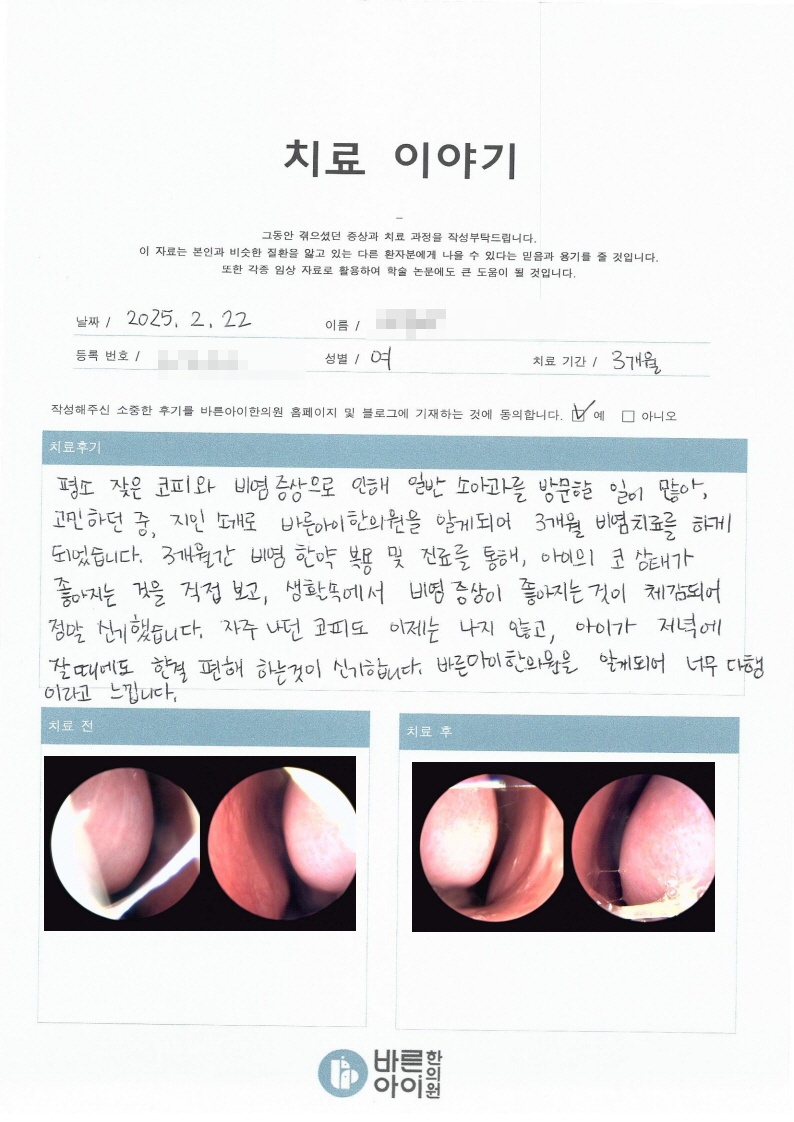 치료 이야기
그동안 겪으셨던 증상과 치료 과정을 작성부탁드립니다.
이 자료는 본인과 비슷한 질환을 앓고 있는 다른 환자분에게 나을 수 있다는 믿음과 용기를 줄 것입니다.
또한 각종 임상 자료로 활용하여 학술 논문에도 큰 도움이 될 것입니다.
날짜 / 2025. 2. 22 이름 /
등록 번호 / 성별 / 여 치료 기간 / 3개월
작성해주신 소중한 후기를 바른아이한의원 홈페이지 및 블로그에 기재하는 것에 동의합니다. ☑ 예 ☐ 아니오
치료후기
평소 잦은 코피와 비염증상으로 인해 일반 소아과를 방문할 일이 많아,
고민하던 중, 지인 소개로 바른아이한의원을 알게되어 3개월 비염치료를 하게
되었습니다. 3개월간 비염 한약 복용 및 진료를 통해, 아이의 코 상태가
좋아지는 것을 직접 보고, 생활속에서 비염 증상이 좋아지는것이 체감되어
정말 신기했습니다. 자주 나던 코피도 이제는 나지 않고, 아이가 저녁에
잘때에도 한결 편해 하는것이 신기합니다. 바른아이한의원을 알게되어 너무 다행
이라고 느낍니다.
치료 전
치료 후
바른아이한의원